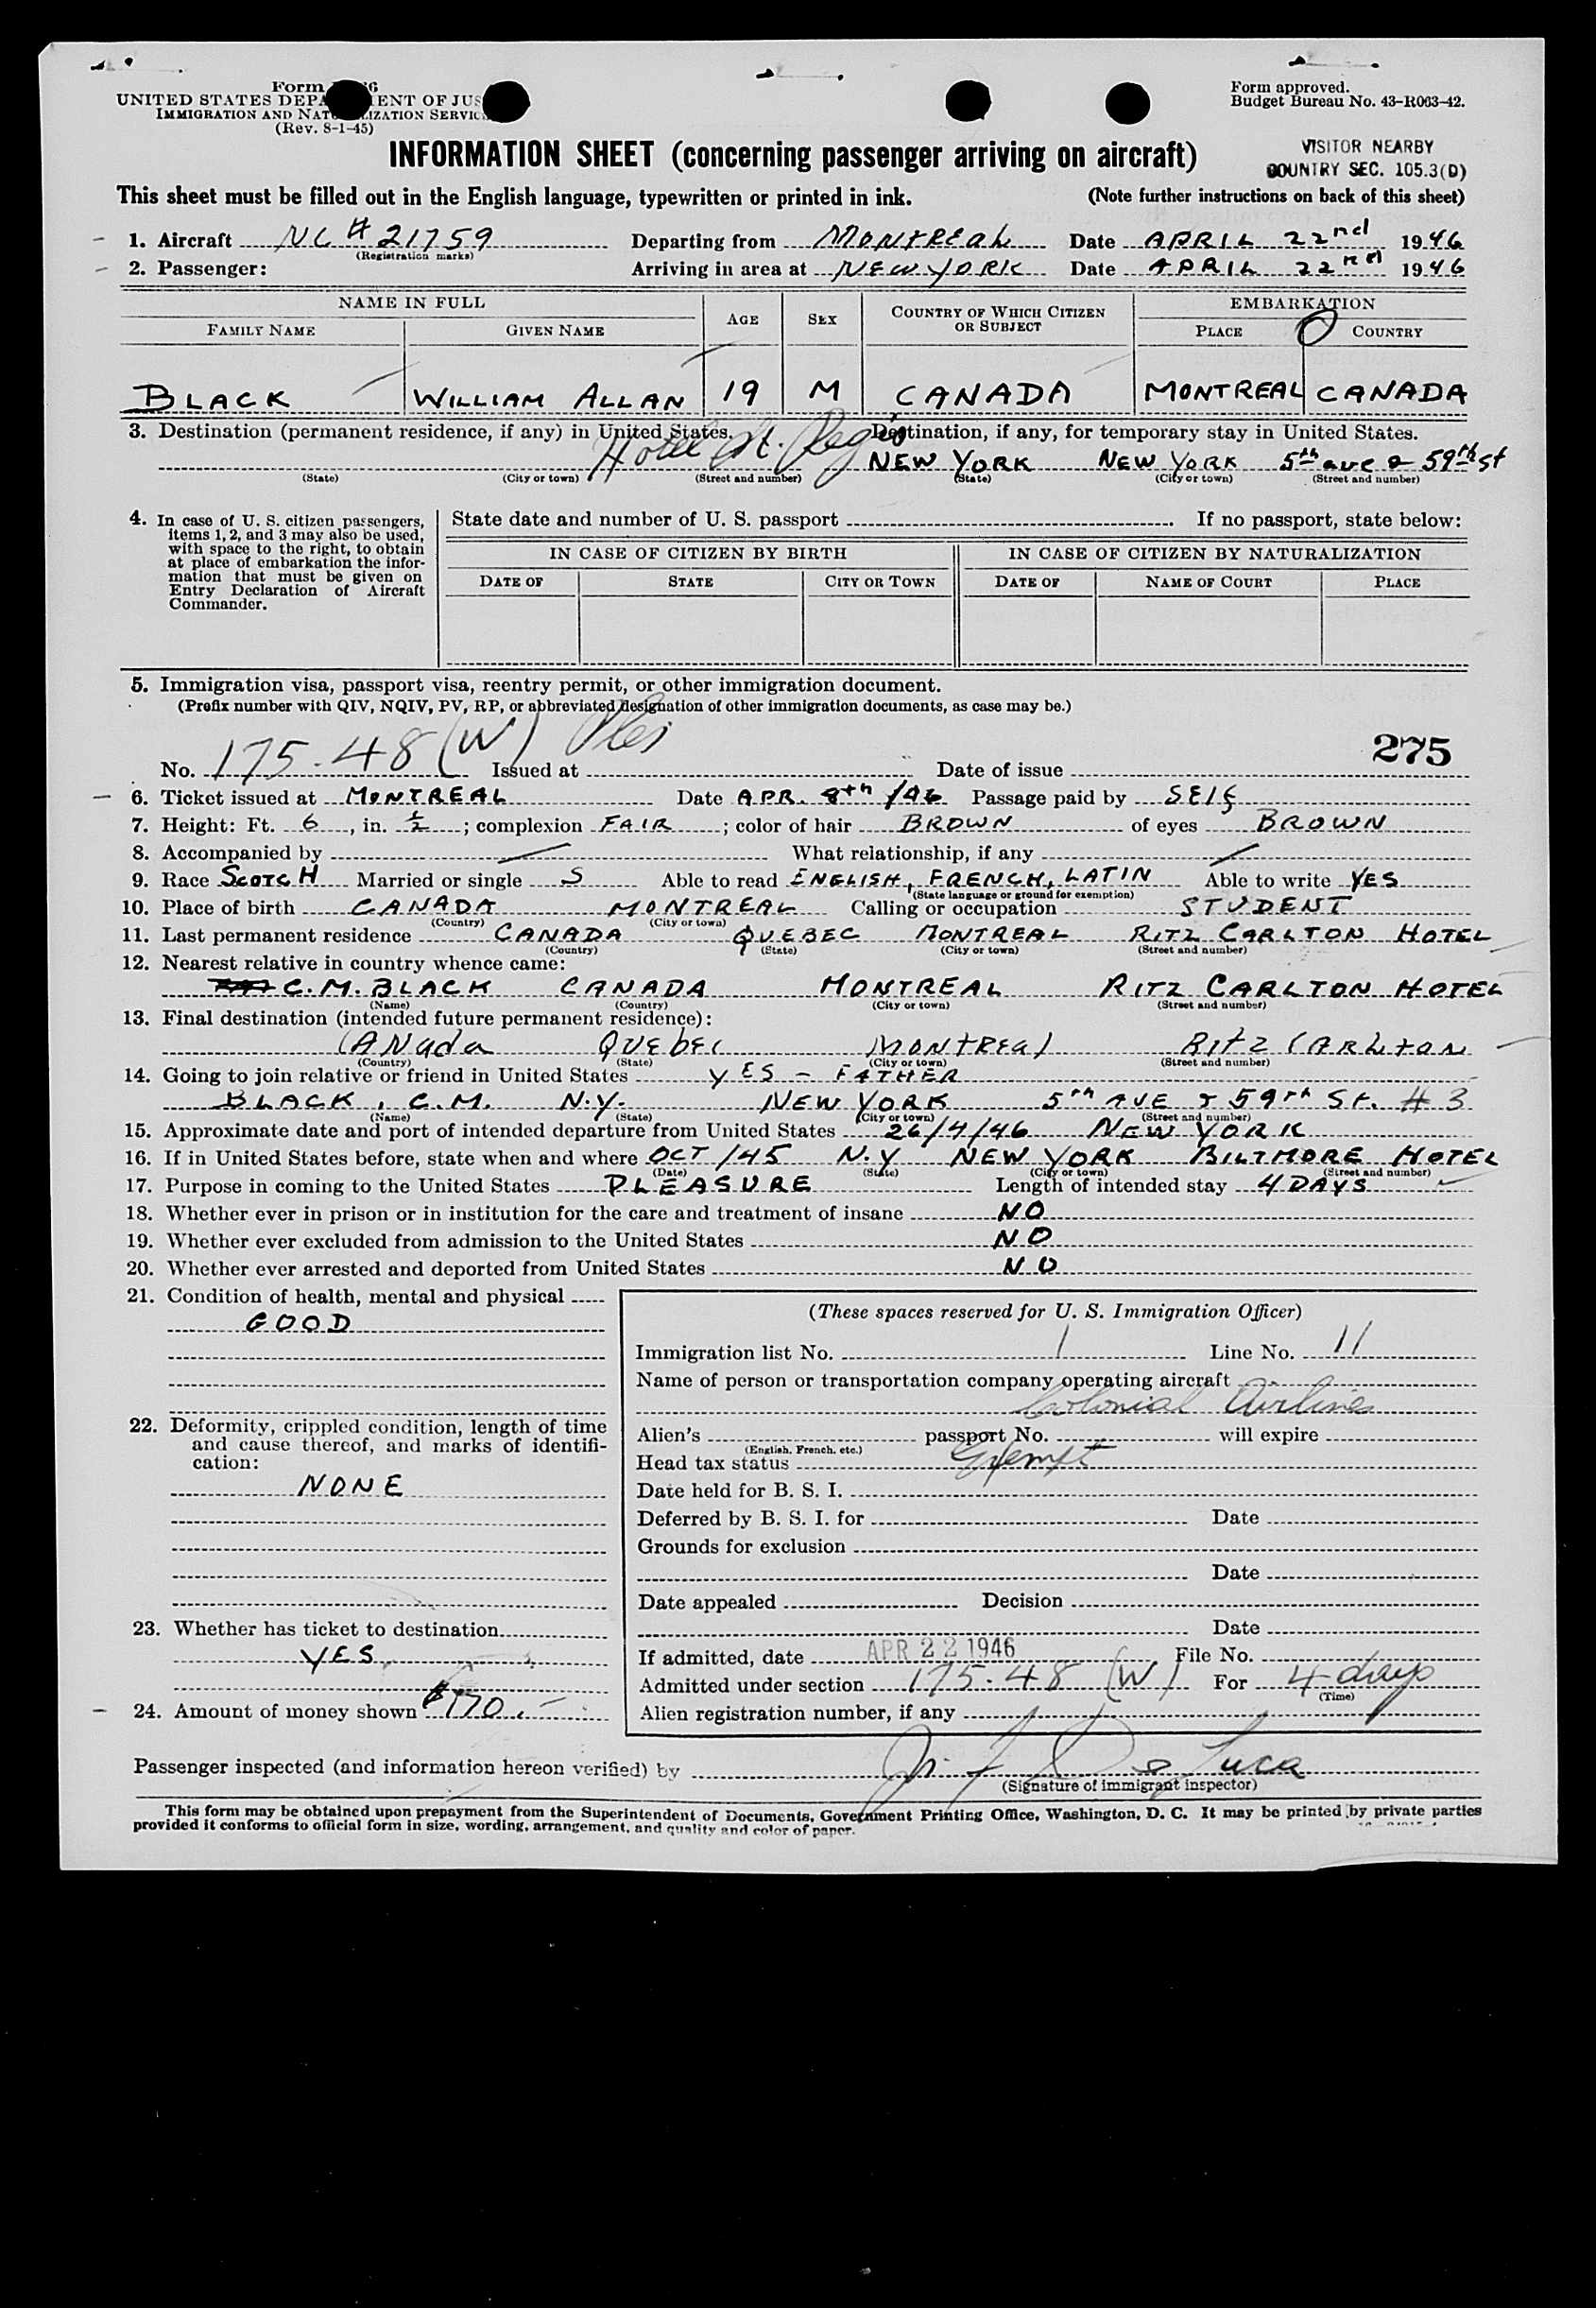 Form 6
UNITED STATES DEPA ENT OF JUS
IMMIGRATION AND NATU LIZATION SERVIC
(Rev. 8-1-45)
Form approved.
Budget Bureau No. 43-R063-42.
INFORMATION SHEET (concerning passenger arriving on aircraft)
VISITOR NEARBY
COUNTRY SEC. 105.3(D)
This sheet must be filled out in the English language, typewritten or printed in ink. (Note further instructions on back of this sheet)
1. Aircraft NC # 21759 Departing from MONTREAL Date APRIL 22nd 1946
(Registration marks)
2. Passenger: Arriving in area at NEW YORK Date APRIL 22nd 1946
NAME IN FULL AGE SEX COUNTRY OF WHICH CITIZEN OR SUBJECT EMBARKATION
FAMILY NAME GIVEN NAME PLACE COUNTRY
BLACK WILLIAM ALLAN 19 M CANADA MONTREAL CANADA
3. Destination (permanent residence, if any) in United States. Destination, if any, for temporary stay in United States.
Hotel St. Regis NEW YORK NEW YORK 5th ave & 59th St
(State) (City or town) (Street and number) (State) (City or town) (Street and number)
4. In case of U. S. citizen passengers, items 1, 2, and 3 may also be used, with space to the right, to obtain at place of embarkation the information that must be given on Entry Declaration of Aircraft Commander.
State date and number of U. S. passport If no passport, state below:
IN CASE OF CITIZEN BY BIRTH IN CASE OF CITIZEN BY NATURALIZATION
DATE OF STATE CITY OR TOWN DATE OF NAME OF COURT PLACE
5. Immigration visa, passport visa, reentry permit, or other immigration document.
(Prefix number with QIV, NQIV, PV, RP, or abbreviated designation of other immigration documents, as case may be.)
275
No. 175.48 (W) Issued at Date of issue
6. Ticket issued at MONTREAL Date APR. 8th /46 Passage paid by SELF
7. Height: Ft. 6, in. ½; complexion FAIR; color of hair BROWN of eyes BROWN
8. Accompanied by What relationship, if any
9. Race SCOTCH Married or single S Able to read ENGLISH, FRENCH, LATIN Able to write YES
(State language or ground for exemption)
10. Place of birth CANADA MONTREAL Calling or occupation STUDENT
(Country) (City or town)
11. Last permanent residence CANADA QUEBEC MONTREAL RITZ CARLTON HOTEL
(Country) (State) (City or town) (Street and number)
12. Nearest relative in country whence came:
C. M. BLACK CANADA MONTREAL RITZ CARLTON HOTEL
(Name) (Country) (City or town) (Street and number)
13. Final destination (intended future permanent residence):
CANada QUEbEC MONTREAl RITZ CARLTON
(Country) (State) (City or town) (Street and number)
14. Going to join relative or friend in United States YES - FATHER
BLACK, C. M. N.Y. NEW YORK 5th AVE & 59th St. # 3
(Name) (State) (City or town) (Street and number)
15. Approximate date and port of intended departure from United States 26/4/46 NEW YORK
16. If in United States before, state when and where OCT /45 N.Y NEW YORK BILTMORE HOTEL
(Date) (State) (City or town) (Street and number)
17. Purpose in coming to the United States PLEASURE Length of intended stay 4 DAYS
18. Whether ever in prison or in institution for the care and treatment of insane NO
19. Whether ever excluded from admission to the United States NO
20. Whether ever arrested and deported from United States NO
21. Condition of health, mental and physical
GOOD
22. Deformity, crippled condition, length of time and cause thereof, and marks of identification:
NONE
23. Whether has ticket to destination
YES
24. Amount of money shown $170.-
(These spaces reserved for U. S. Immigration Officer)
Immigration list No. 1 Line No. 11
Name of person or transportation company operating aircraft
Colonial Airlines
Alien's passport No. will expire
(English, French, etc.)
Head tax status Exempt
Date held for B. S. I.
Deferred by B. S. I. for Date
Grounds for exclusion
Date
Date appealed Decision
Date
If admitted, date APR 22 1946 File No.
Admitted under section 175.48 (W) For 4 days
(Time)
Alien registration number, if any
Passenger inspected (and information hereon verified) by De Luca
(Signature of immigrant inspector)
This form may be obtained upon prepayment from the Superintendent of Documents, Government Printing Office, Washington, D. C. It may be printed by private parties
provided it conforms to official form in size, wording, arrangement, and quality and color of paper.